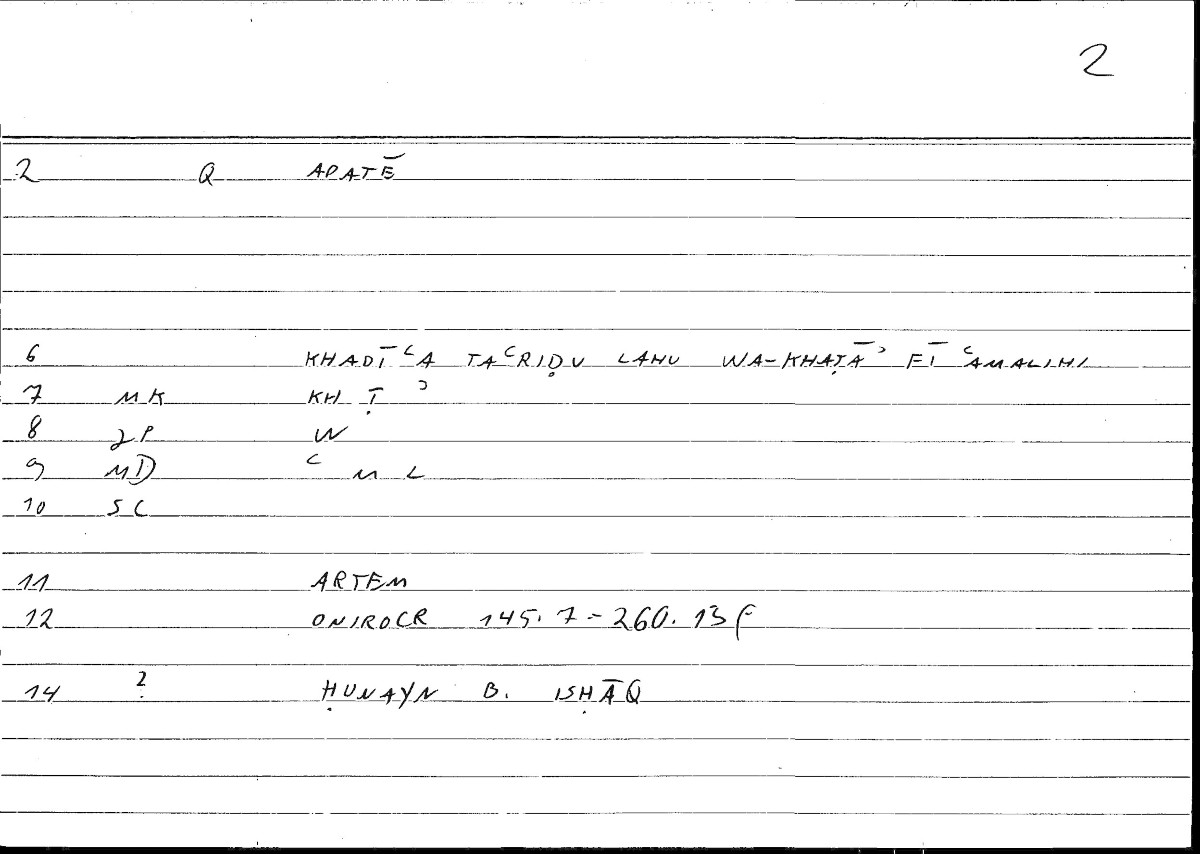 2
2 Q APATĒ
6 KHADĪʿA TAʿRIḌU LAHU WA-KHAṬĀʾ FĪ ʿAMALIHI
7 MK KH Ṭ ʾ
8 2P W
9 MD ʿ M L
10 SC
11 ARTEM
12 ONIROCR 145.7-260.13 f
14 ? ḤUNAYN B. ISḤĀQ